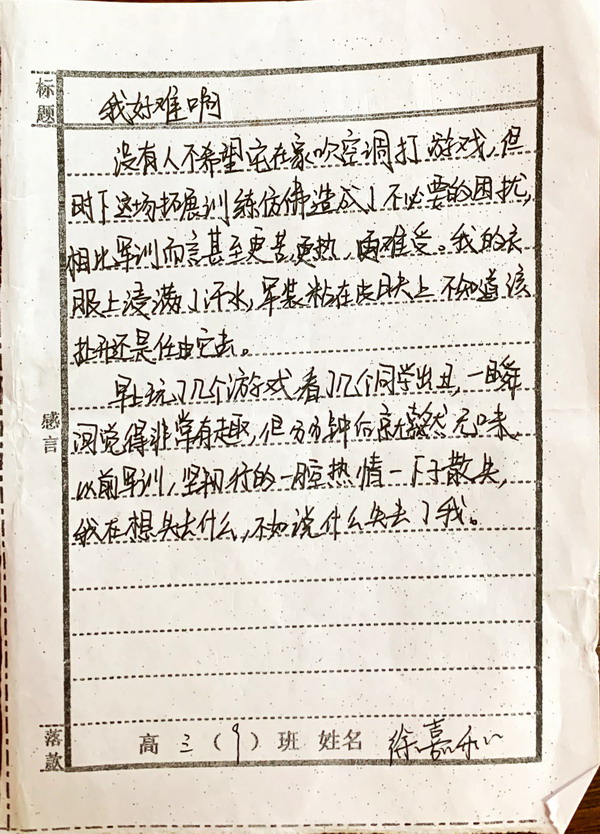 标题
我好难啊
没有人不希望宅在家吹空调打游戏,但
时下这场拓展训练仿佛造成了不必要的困扰,
相比军训而言甚至更苦更热,更难受。我的衣
服上浸满了汗水,军装粘在皮肤上不知道该
扯开还是任由它去。
早上玩了几个游戏看了几个同学出丑,一瞬
间觉得非常有趣,但分分钟后就索然无味、
以前军训,坚韧行的一腔热情一下子散失,
我在想失去什么,不如说什么失去了我。
感言
落款
高三(9)班 姓名 徐嘉